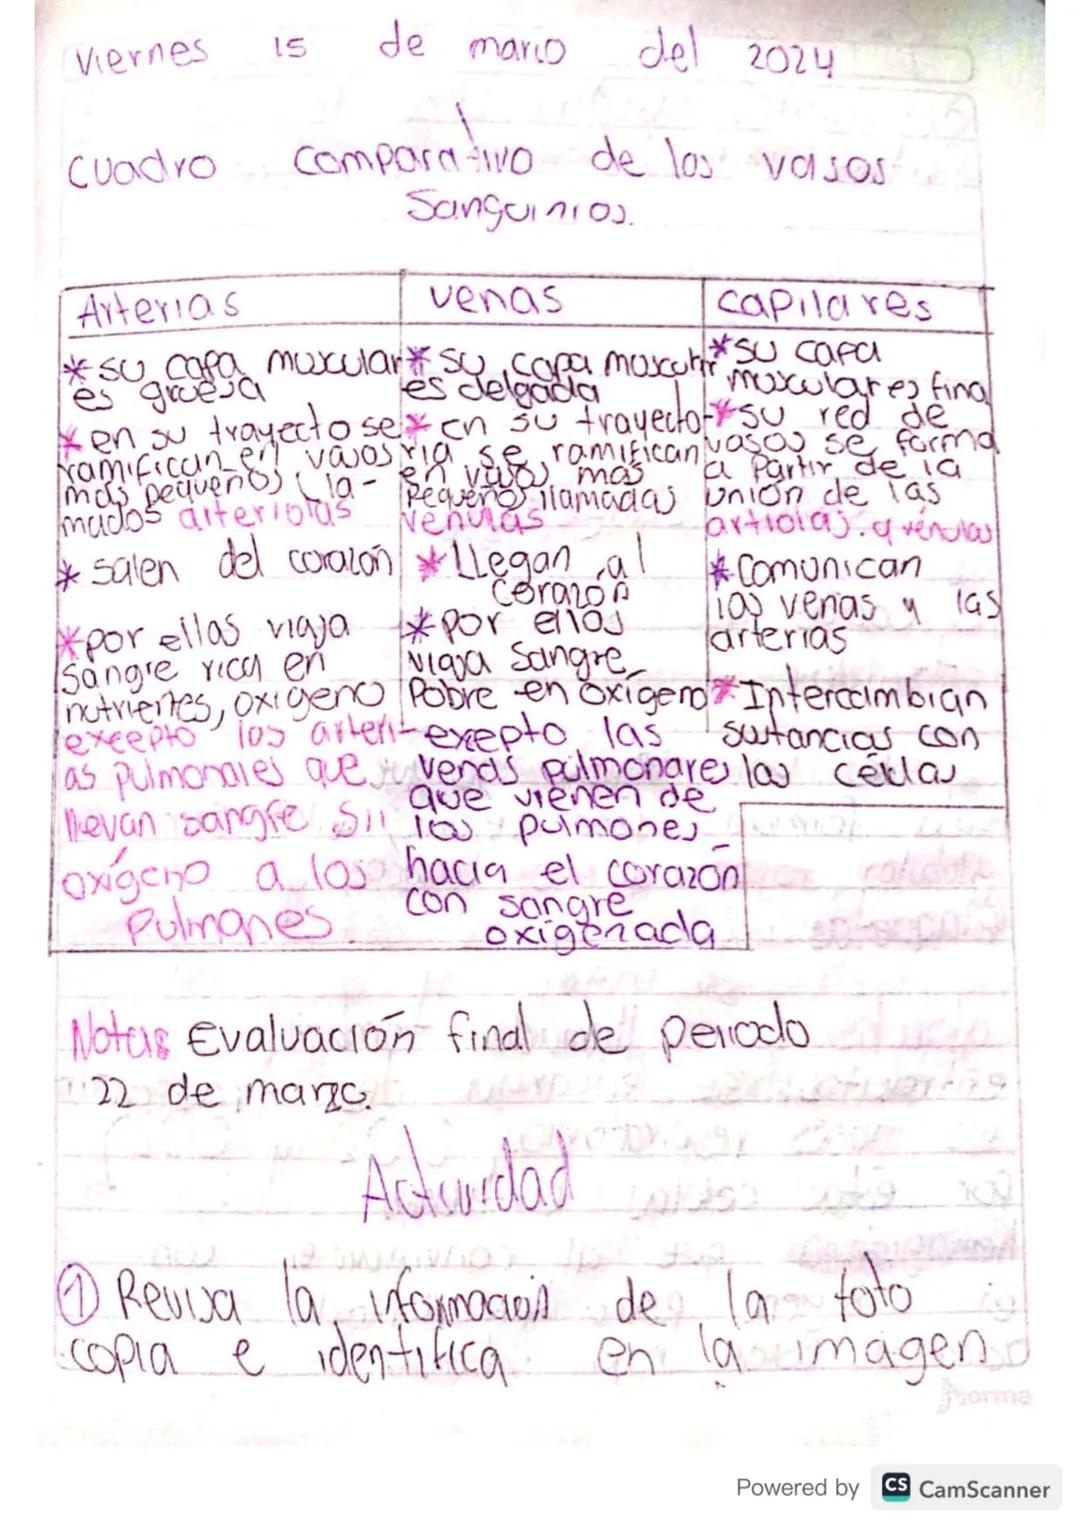 Viernes 15 de marzo del 2024
Cuadro Comparativo de los vasos
Sanguinios.
Arterias
* su capa muxcular
es gruesa
* en su trayecto se
ramifican en vasos
más pequeños (lla-
mados arteriolas
* salen del corazón
* por ellas viaja
sangre rica en
nutrientes, oxigeno
exeepto las arteri-
as pulmonales que
llevan sangre sin
oxígeno a los
Pulmones.
venas
* su capa muscular
es delgada
* en su trayecto-
ria se ramifican
en vasos más
pequeños llamadas
venulas
* LLegan al
Corazón
* por ellas
viaja sangre
Pobre en oxígeno
exepto las
venas pulmonares
que vienen de
los pulmones
hacia el corazón
con sangre
oxigenada
capilares
* su capa
muxcular es fina
* su red de
vasos se forma
a partir de la
unión de las
artiolas. y vénulas
* Comunican
las venas y las
arterias
* Intercambian
sustancias con
las células
Notas Evaluación final de periodo
22 de marzo.
Actividad
① Revisa la información de la foto
copia e identifica en la imagen
Powered by CS CamScanner